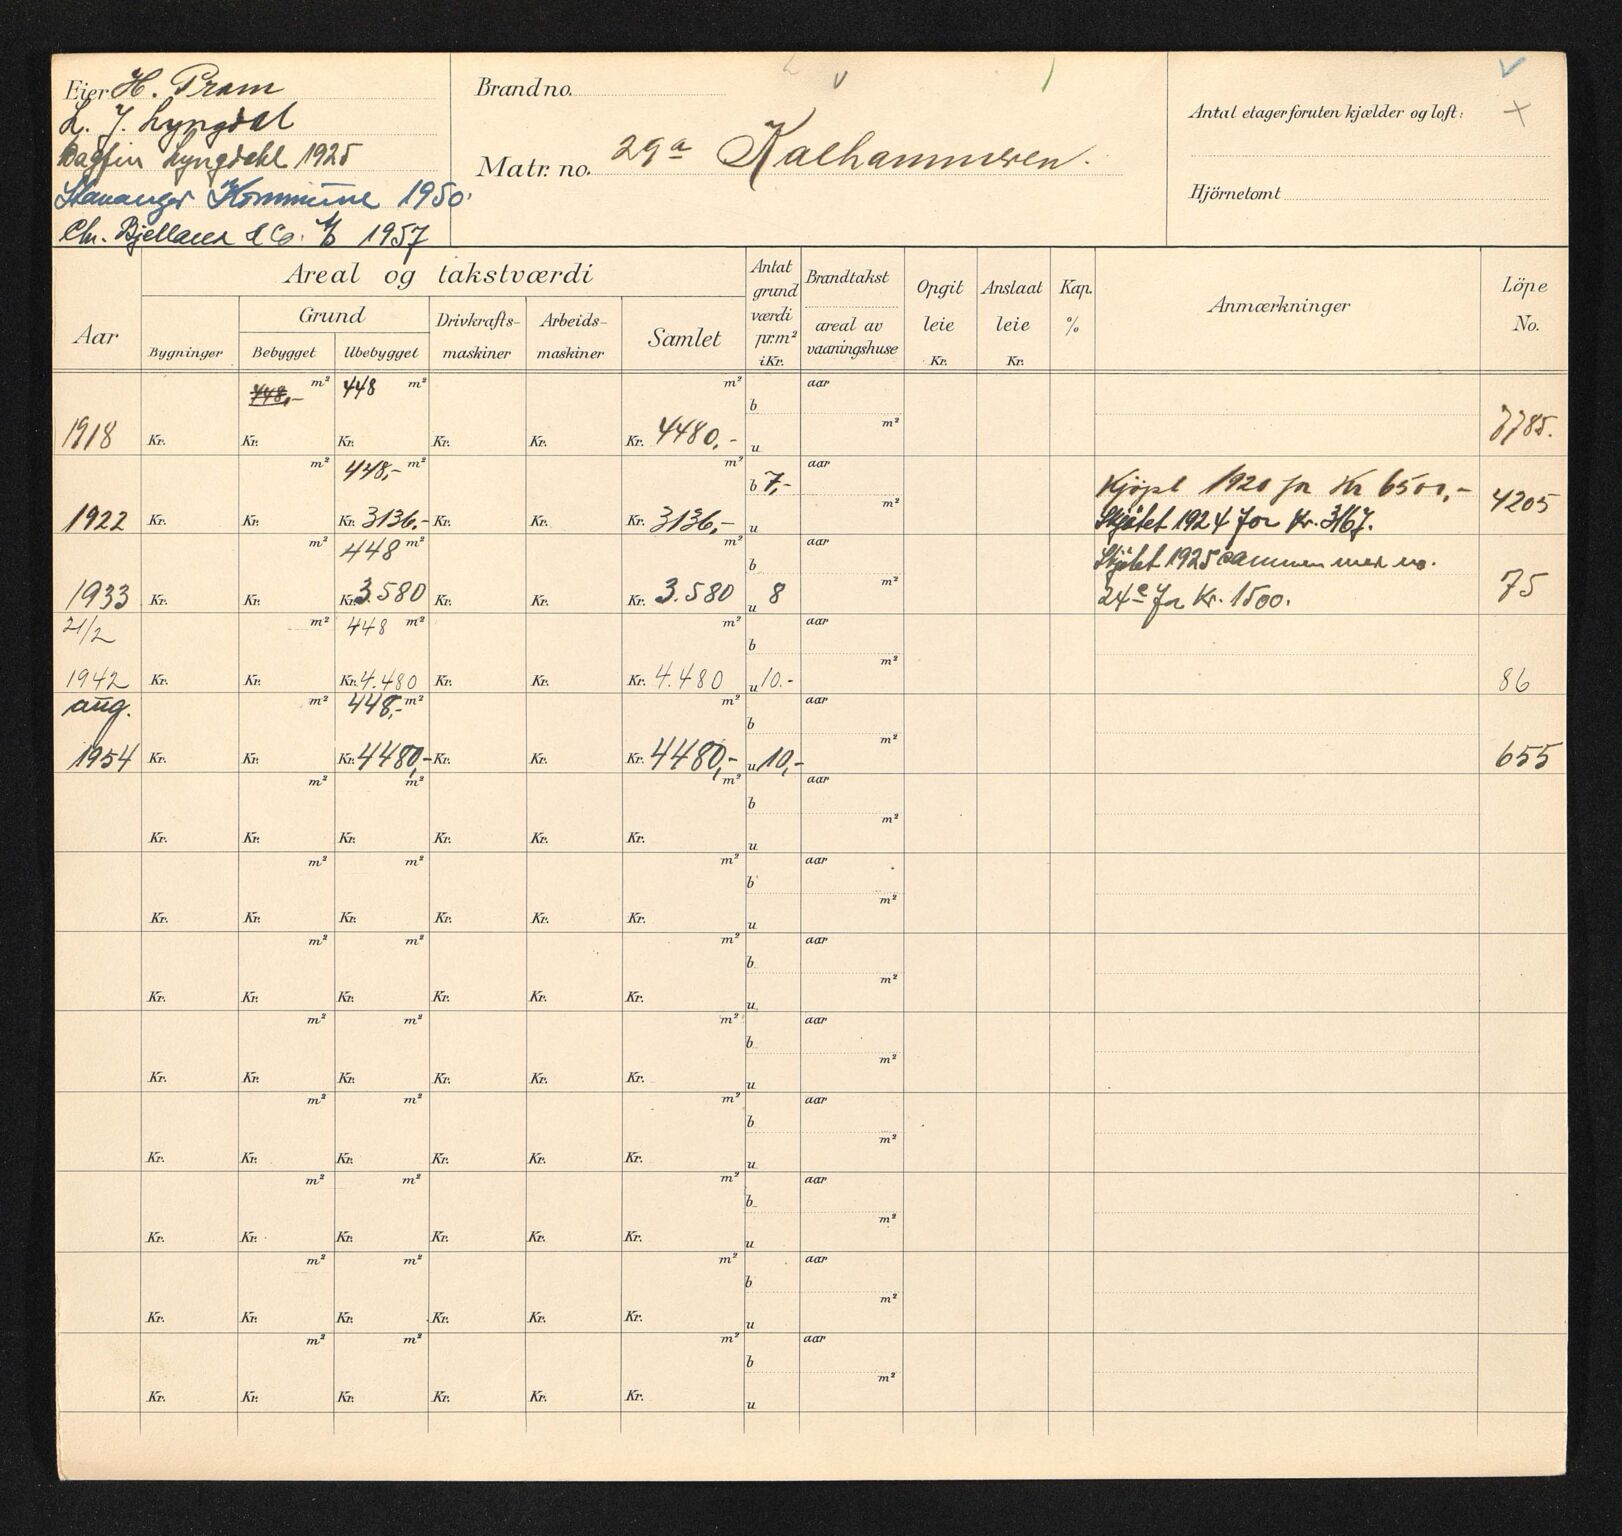 Eier H. Pram
L. J. Lyngdal
Dagfin Lyngdahl 1925
Stavanger Kommune 1950.
Chr. Bjelland & Co. A/S 1957
Brand no.
Matr. no. 29a Kalhammeren.
Antal etager foruten kjælder og loft: +
Hjörnetomt
Aar
Areal og takstværdi
Bygninger
Grund
Bebygget
Ubebygget
Drivkrafts-
maskiner
Arbeids-
maskiner
Samlet
Antat
grund
værdi
pr.m²
i Kr.
Brandtakst
areal av
vaaningshuse
Opgit
leie
Kr.
Anslaat
leie
Kr.
Kap.
%
Anmærkninger
Löpe
No.
448,- m² 448 m² m² b aar
1918 Kr. Kr. Kr. Kr. Kr. Kr. 4480,- u m² 7785.
m² 448,- m² m² b 7,- aar Kjøpt 1920 for Kr 6500,-
1922 Kr. Kr. Kr. 3136,- Kr. Kr. Kr. 3136,- u m² Skjøtet 1924 for Kr. 3167. 4205
m² 448 m² m² b aar Skjøtet 1925 sammen med no.
1933 Kr. Kr. Kr. 3.580 Kr. Kr. Kr. 3.580 u 8 m² 24c for Kr. 1500. 75
21/2 m² 448 m² m² b aar
1942 Kr. Kr. Kr. 4.480 Kr. Kr. Kr. 4.480 u 10.- m² 86
aug. m² 448,- m² m² b aar
1954 Kr. Kr. Kr. 4480,- Kr. Kr. Kr. 4480,- u 10,- m² 655
m² m² m² b aar
Kr. Kr. Kr. Kr. Kr. Kr. u m²
m² m² m² b aar
Kr. Kr. Kr. Kr. Kr. Kr. u m²
m² m² m² b aar
Kr. Kr. Kr. Kr. Kr. Kr. u m²
m² m² m² b aar
Kr. Kr. Kr. Kr. Kr. Kr. u m²
m² m² m² b aar
Kr. Kr. Kr. Kr. Kr. Kr. u m²
m² m² m² b aar
Kr. Kr. Kr. Kr. Kr. Kr. u m²
m² m² m² b aar
Kr. Kr. Kr. Kr. Kr. Kr. u m²
m² m² m² b aar
Kr. Kr. Kr. Kr. Kr. Kr. u m²